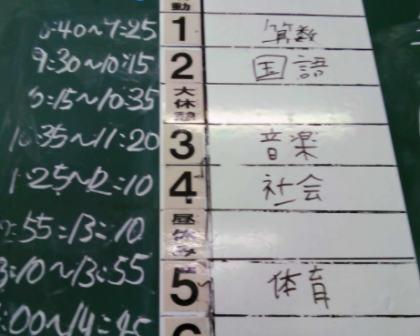 動
:40~9:25 1 算数
9:30~10:15 2 国語
0:15~10:35 大休憩
10:35~11:20 3 音楽
1:25~12:10 4 社会
2:55:13=10 昼休み
3:10~13:55 5 体育
:00~14=45 6